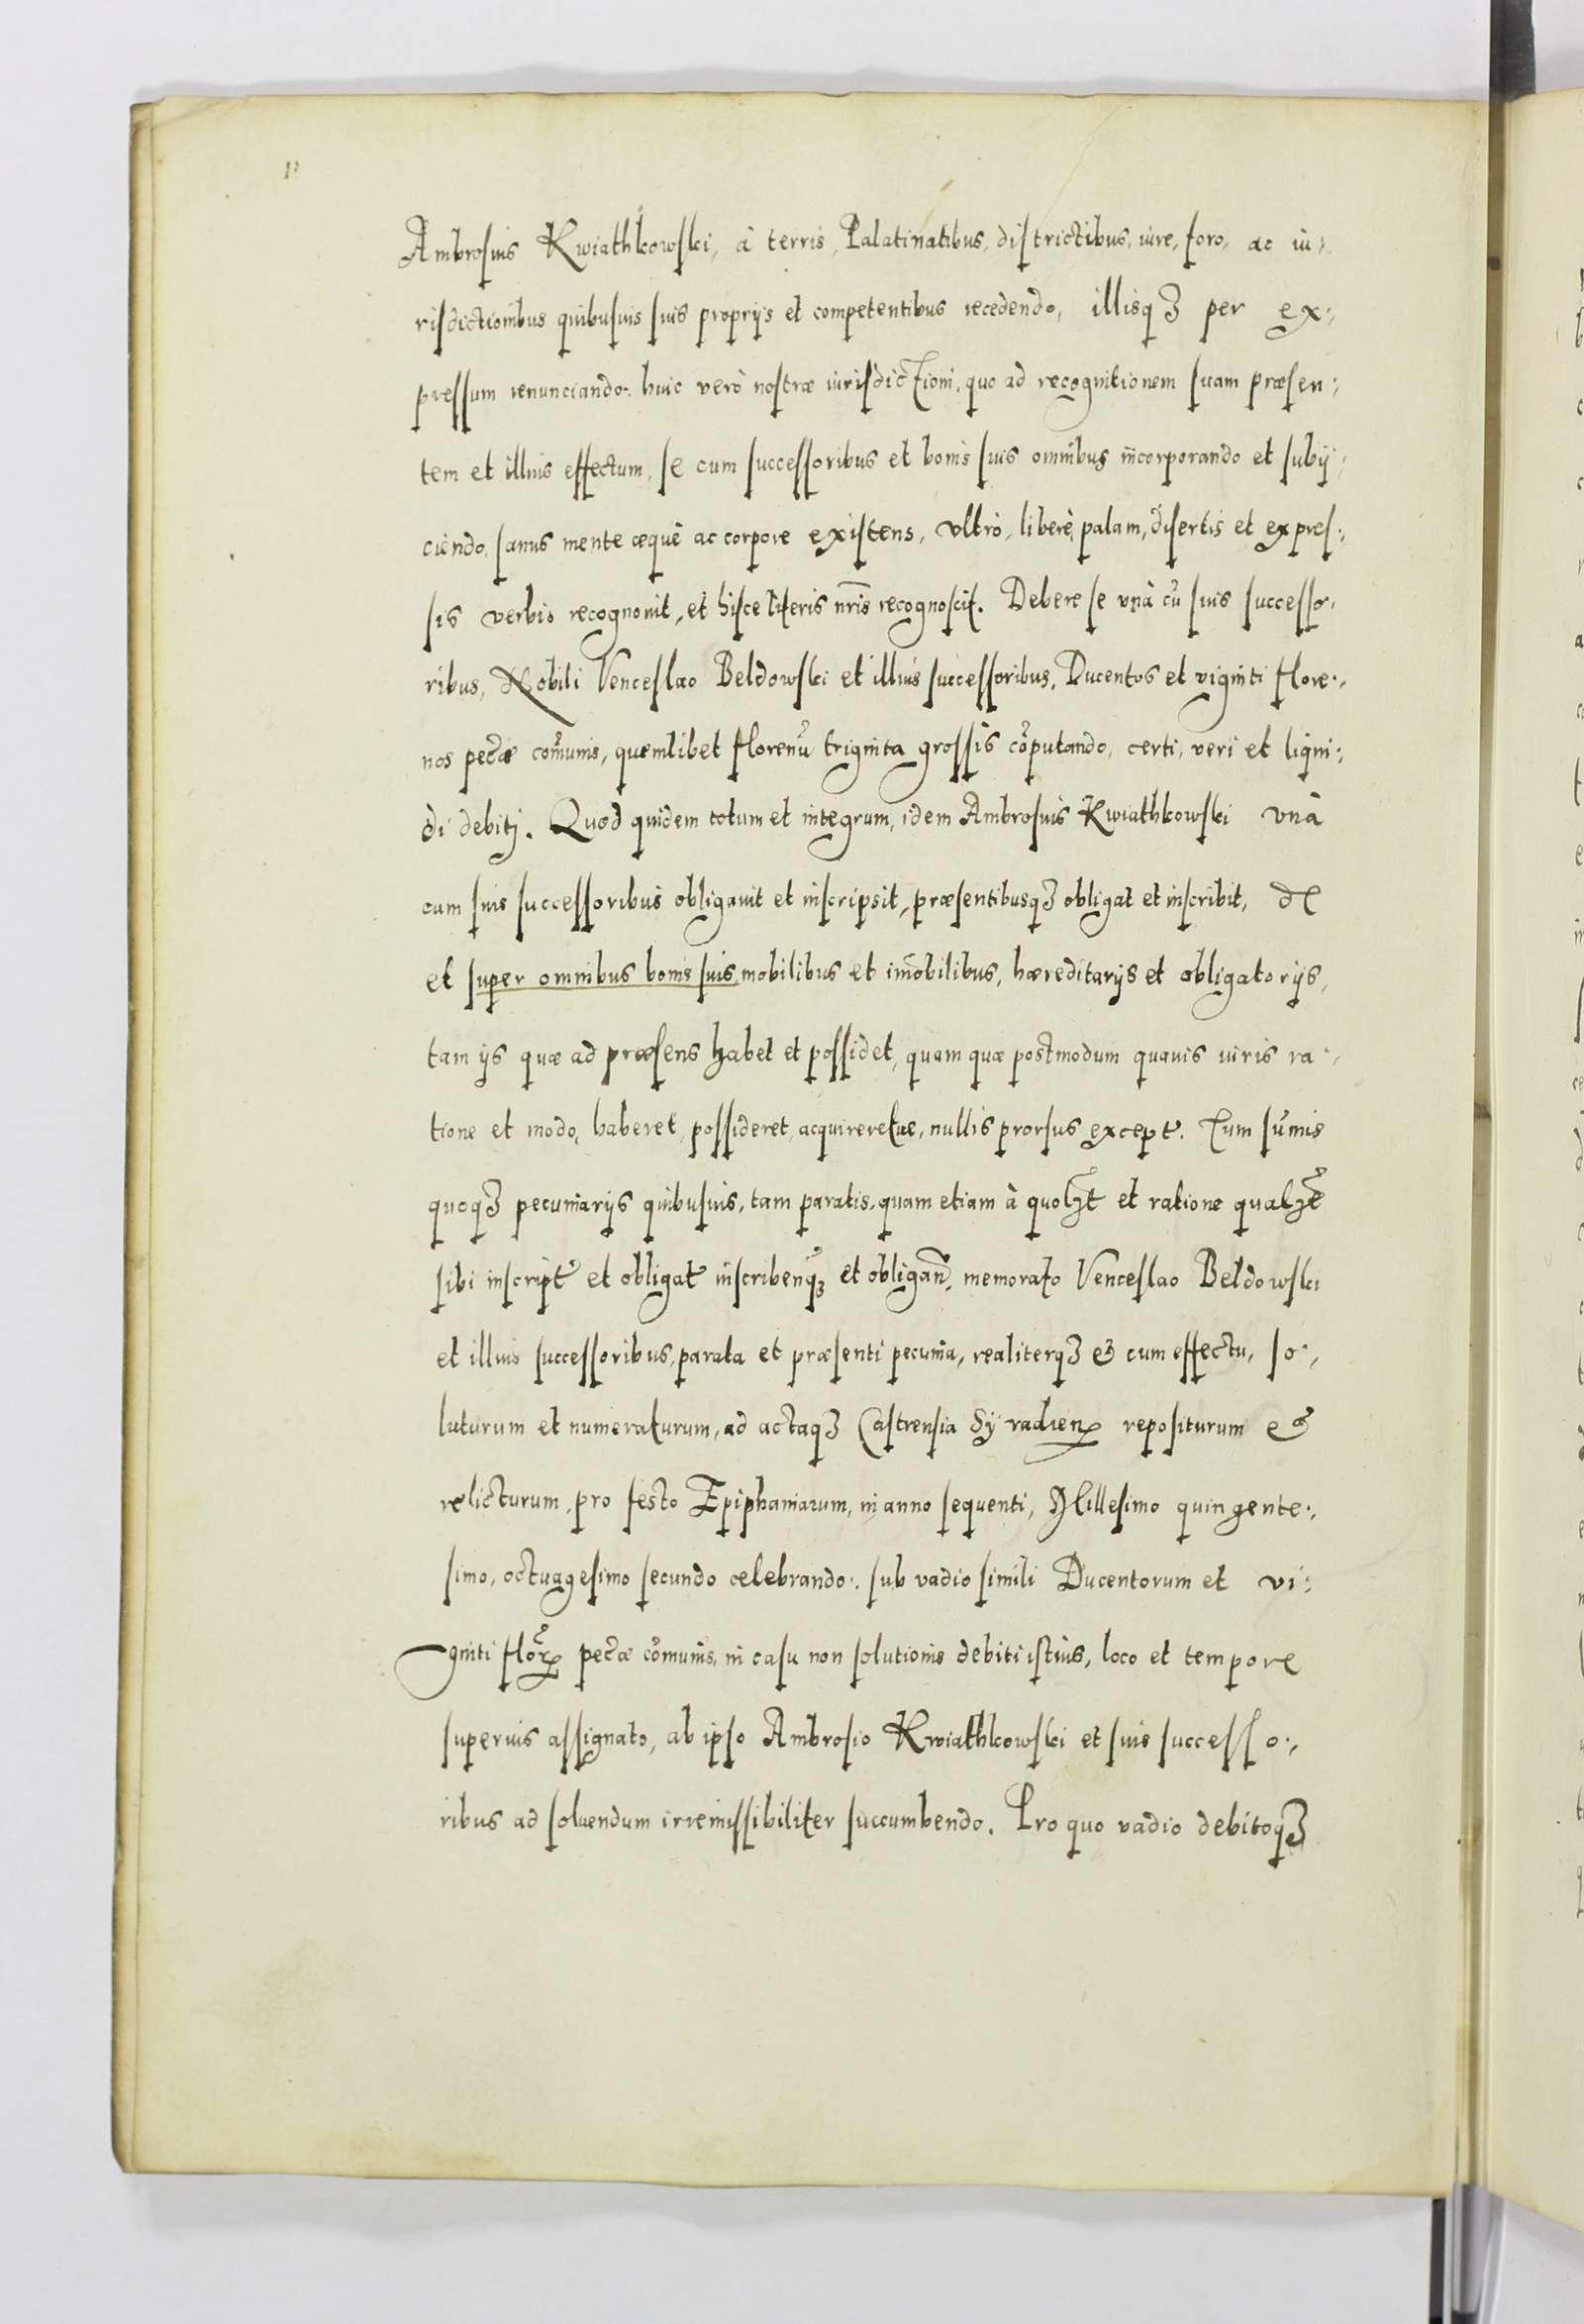 Ambrosius Kwiathkowski, à terris, Palatinatibus, districtibus, iure, foro, ac iu-,
risdictionibus quibusuis suis proprijs et competentibus recedendo, illisqȝ per ex.,
pressum renunciando: huic verò nostræ iurisdictioni, quo ad recognitionem suam præsen:,
tem et illius effectum, se cum successoribus et bonis suis omnibus incorporando et subij:,
ciendo, sanus mente æquè ac corpore existens, vltrò, liberè, palam, disertis et expres:,
sis verbis recognouit, et hisce literis nr̃is recognoscit. Debere se vnà cũ suis successo.,
ribus, Nobili Venceslao Beldowski et illius successoribus, Ducentos et viginti flore.,
nos pec̃æ com̃unis, quemlibet florenũ triginta grossis cõputando, certi, veri et liqui:,
di debitj. Quod quidem totum et integrum, idem Ambrosius Kwiathkowski vnà
cum suis successoribus obligauit et inscripsit, præsentibusqȝ obligat et inscribit, de
et super omnibus bonis suis, mobilibus et im̃obilibus, hæreditarijs et obligatorijs,
tam ijs quæ ad præsens habet et possidet, quam quæ postmodum quauis iuris ra.,
tione et modo, haberet, possideret, acquireretue, nullis prorsus except̃. Tum sum̃is
quoqȝ pecuniarijs quibusuis, tam paratis, quam etiam à quolȝt et ratione qualȝt
sibi inscript̃ et obligat̃ inscribenq̃ȝ et obligañ. memorato Venceslao Beldowski
et illius successoribus, parata et præsenti pecunia, realiterqȝ & cum effectu, so.,
luturum et numeraturum, ad actaqȝ Castrensia Syradienꝝ repositurum &
relicturum, pro festo Epiphaniarum, in anno sequenti, Millesimo quingente:,
simo, octuagesimo secundo celebrando: sub vadio simili Ducentorum et vi:
ginti flor̃ꝝ pec̃æ com̃unis, in casu non solutionis debiti istius, loco et tempore
superius assignato, ab ipso Ambrosio Kwiathkowski et suis successo.,
ribus ad soluendum irremissibiliter succumbendo. Pro quo vadio debitoqȝ